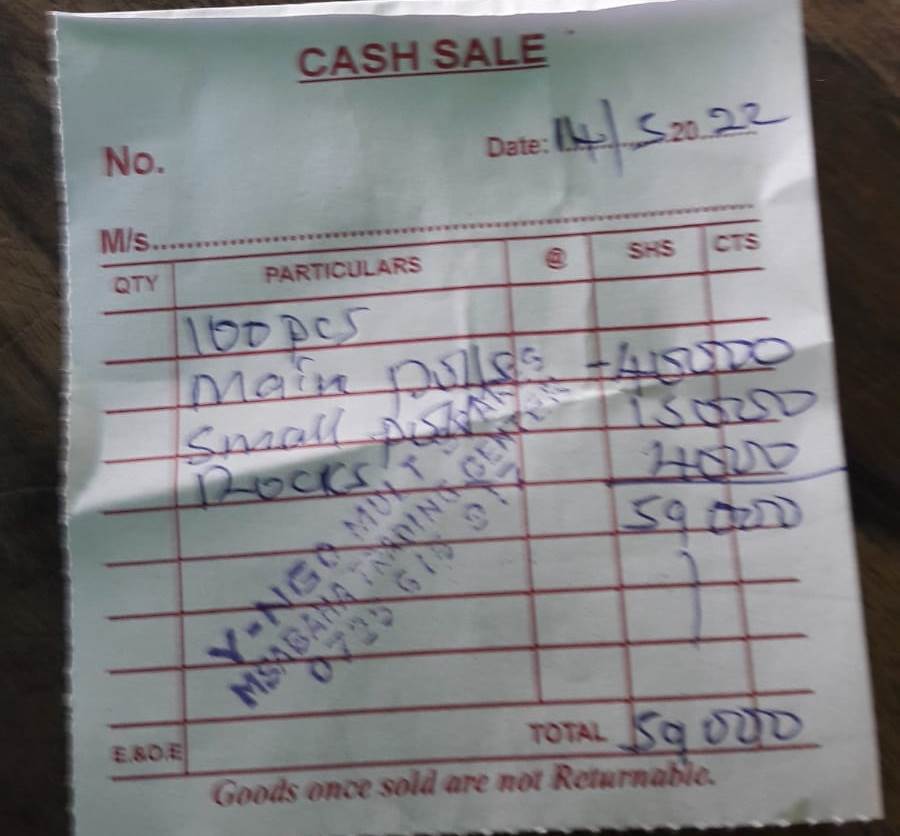 CASH SALE
No.
Date: 14/5 20 22
M/s
QTY PARTICULARS @ SHS CTS
100 pcs
Main poles - 40000
Small poles 15000
Rocks 4000
59 000
TOTAL 59 000
E.&O.E
Goods once sold are not Returnable.
Y-NGO
MSABAHA TRADING CENTER